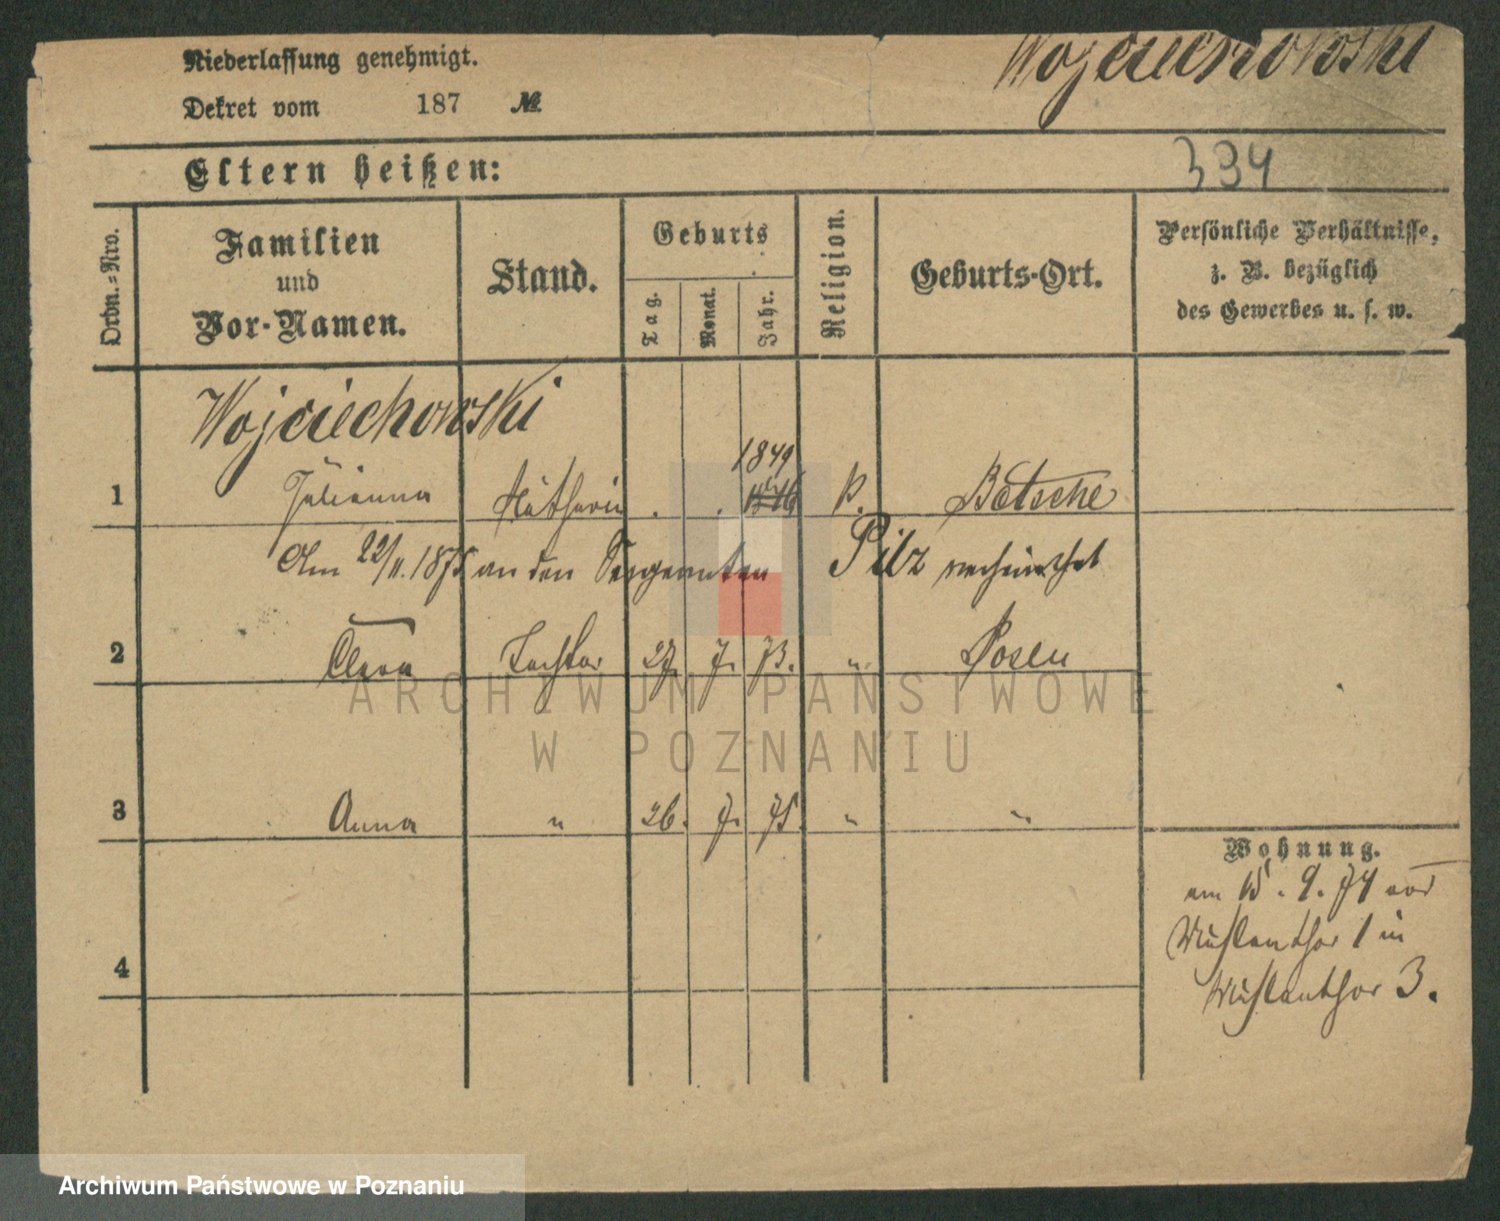 Niederlassung genehmigt.
Wojciechowski
Dekret vom 187 №
Eltern heißen:
394
Ordn.-Nro.
Familien und Vor-Namen.
Stand.
Geburts
Tag.
Monat.
Jahr.
Religion.
Geburts-Ort.
Persönliche Verhältnisse,
z. B. bezüglich
des Gewerbes u. s. w.
Wojciechowski
1849
1 Julianna Näthrin . . 1846 k. Betsche
Am 22/11. 1875 an den Sergeanten Pilz verheirathet
2 Clara Tochter 27. 7. 73. " Posen
ARCHIWUM PAŃSTWOWE
W POZNANIU
3 Anna " 26. 7. 75. " "
Wohnung.
am 15. 9. 74 von
Mühlenthor 1 in
Mühlenthor 3.
4
Archiwum Państwowe w Poznaniu